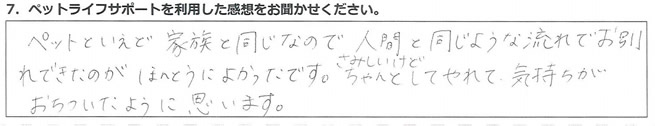 7. ペットライフサポートを利用した感想をお聞かせください。
ペットといえど 家族と同じなので 人間と同じような流れでお別
れできたのが ほんとうによかったです。さみしいけど ちゃんとしてやれて、気持ちが
おちついたように思います。